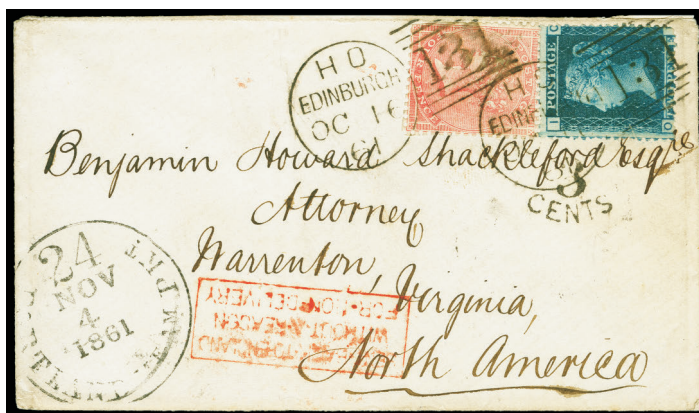 H O
EDINBURGH
OC 16
61
131
POSTAGE
131
3
CENTS
Benjamin Howard Shackleford Esqre
Attorney
Warrenton,
Virginia,
North America
24
NOV
4
1861
PKT
WITHOUT A REASON
FOR NON-DELIVERY